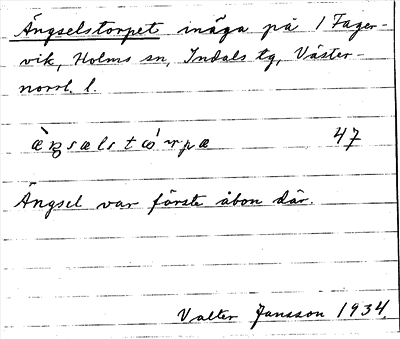 Ängselstorpet inäga på 1 Fager-
vik, Holms sn, Indals tg, Väster-
norrl. l.
æ̀ŋsælstώrpæ 47
Ängsel var förste åbon där.
Valter Jansson 1934.